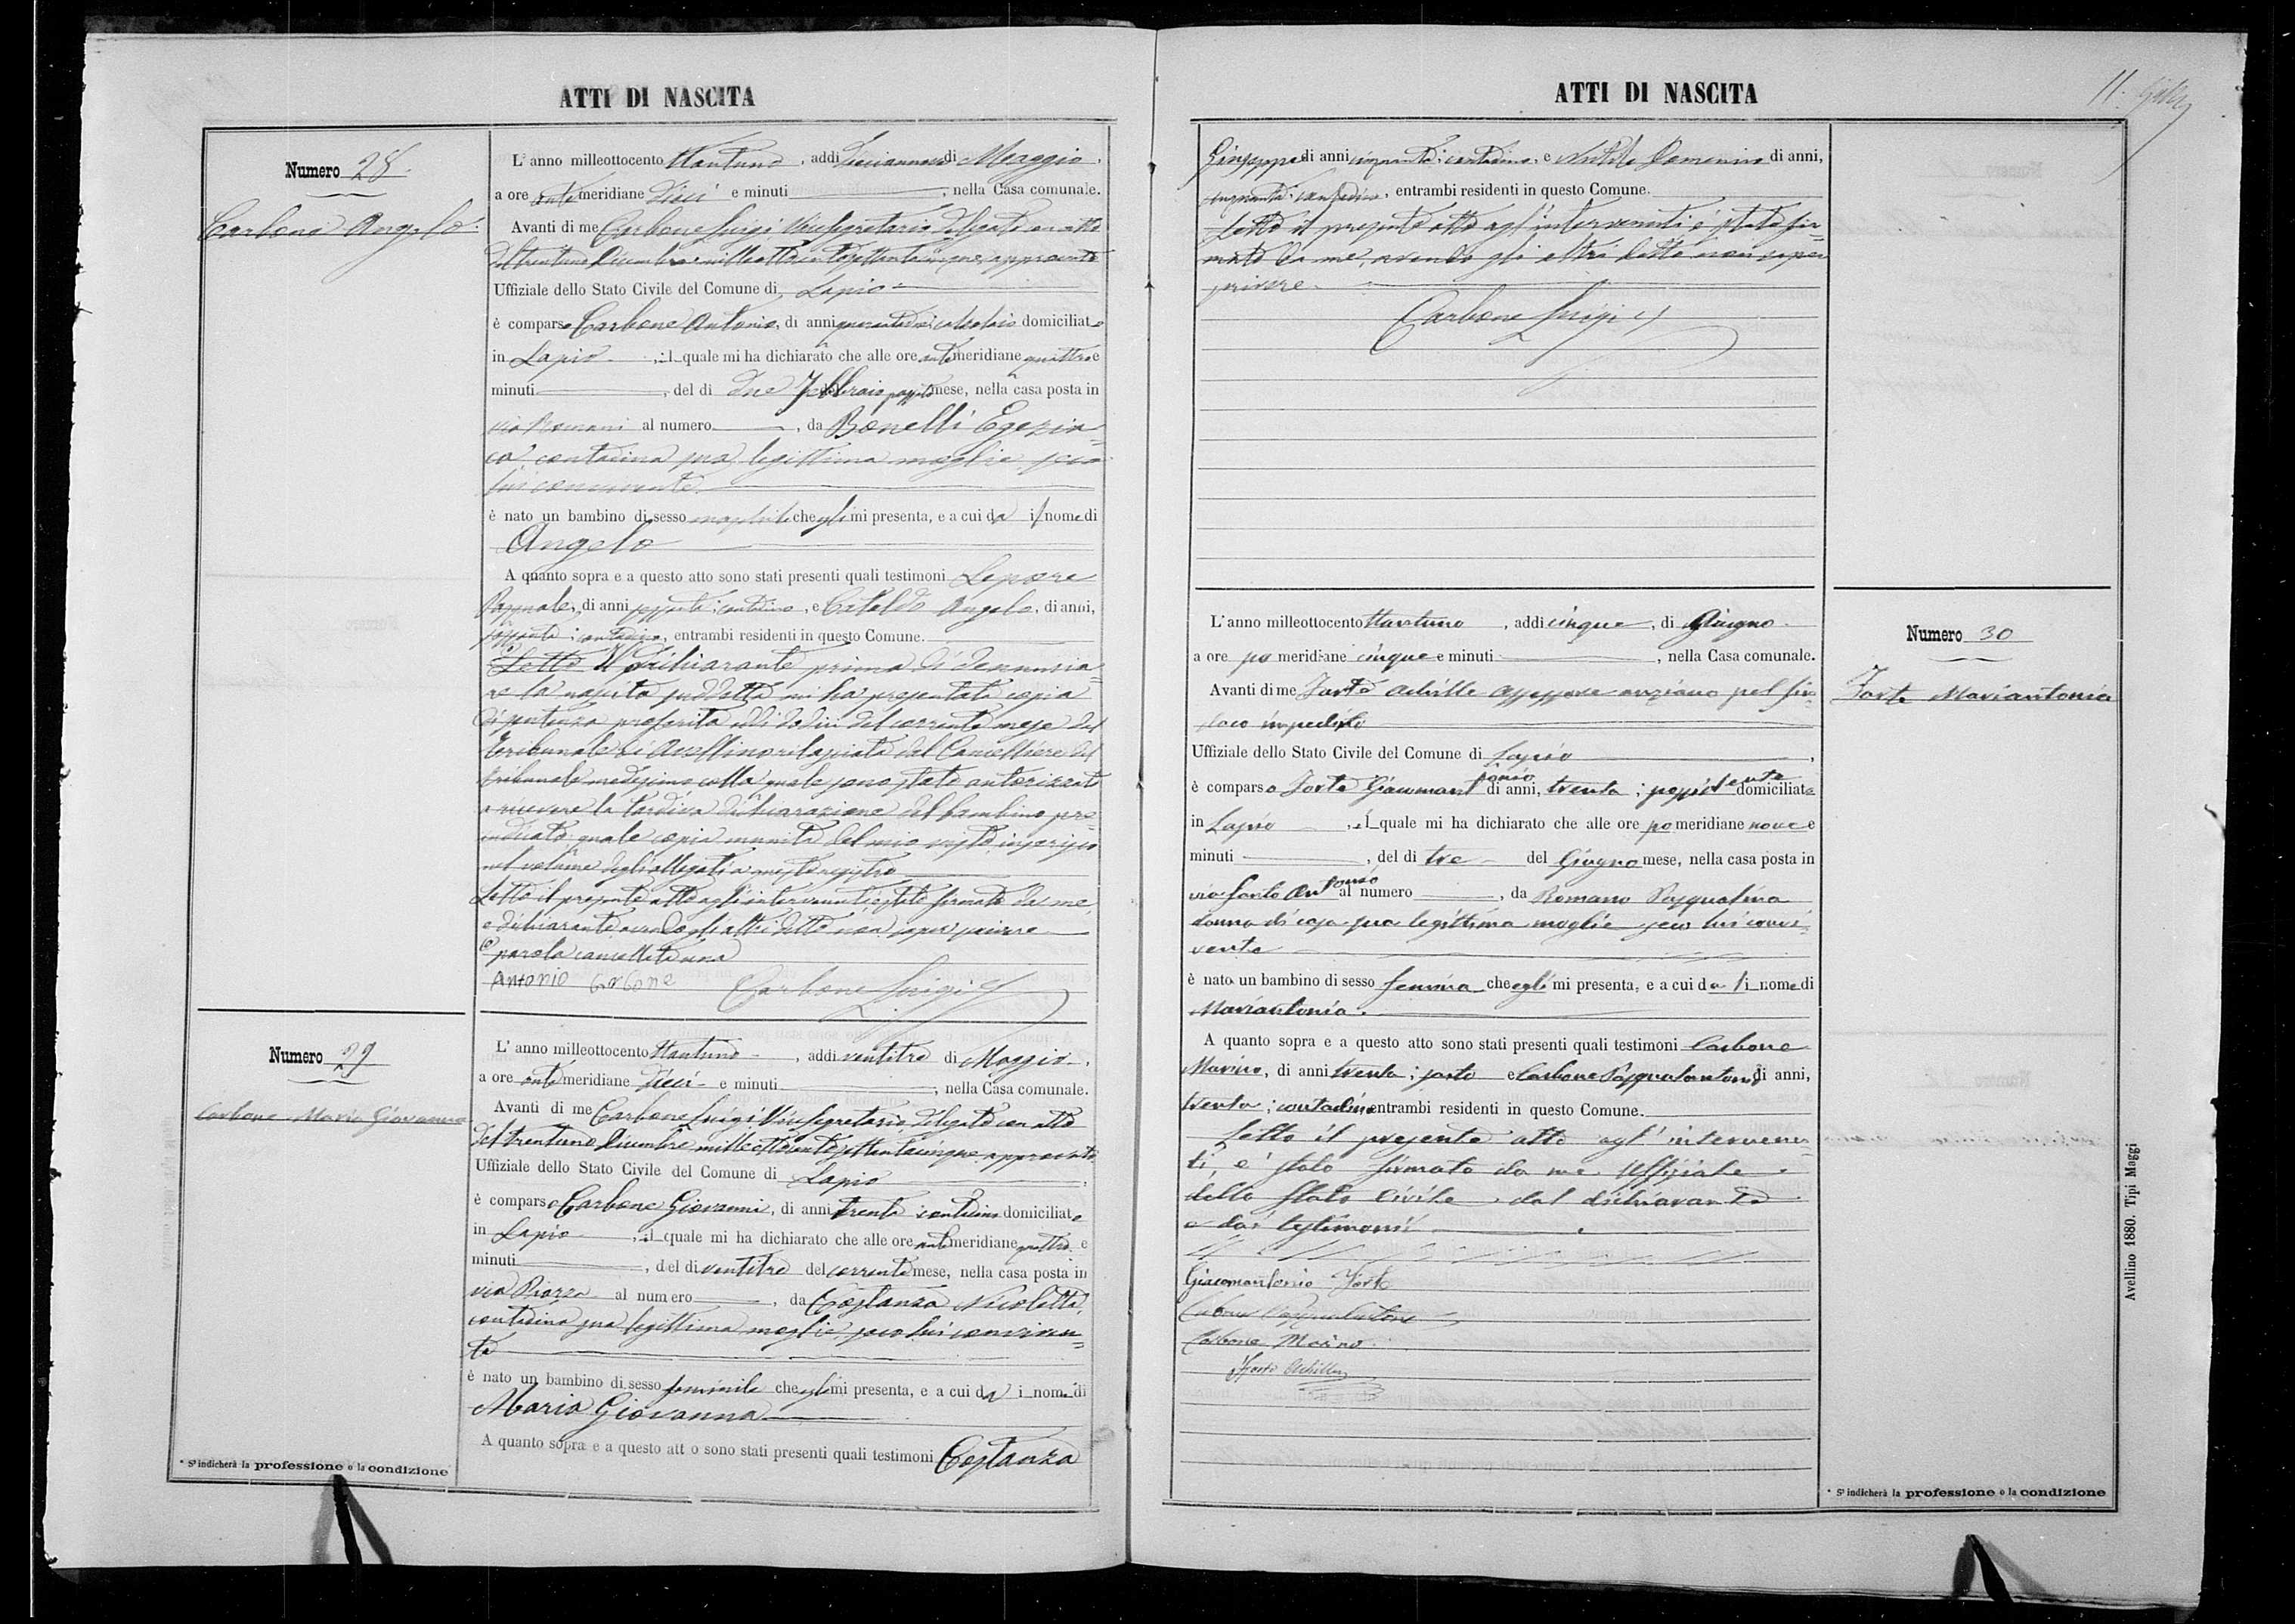 ATTI DI NASCITA
Numero 28
Carbone Angelo
L'anno milleottocento ottantuno, addi diciannove di Maggio,
a ore antemeridiane dieci e minuti, nella Casa comunale.
Avanti di me Carbone Luigi Vicesegretario delegato con atto
del trentuno Dicembre milleottocentosettantacinque, approvato
Uffiziale dello Stato Civile del Comune di Lapio
è comparso Carbone Antonio, di anni calzolaio domiciliato
in Lapio, il quale mi ha dichiarato che alle ore antemeridiane quattro e
minuti, del di due Febbraio passato mese, nella casa posta in
via Romani al numero, da Bonelli Egizia=
ca, contadina sua legittima moglie, seco
lui convivente
è nato un bambino di sesso maschile che egli mi presenta, e a cui dà il nome di
Angelo
A quanto sopra e a questo atto sono stati presenti quali testimoni Lepore
Pasquale, di anni sessanta, contadino, e Cataldo Angelo, di anni,
sessanta, contadino, entrambi residenti in questo Comune.
Letto Il dichiarante prima di denunzia=
re la nascita suddetta mi ha presentata copia
di sentenza proferita addì dodici del corrente mese dal
Tribunale di Avellino rilasciata dal Cancelliere del
tribunale medesimo colla quale sono stato autorizzato
a ricevere la tardiva dichiarazione del bambino pre=
indicato, quale copia munita del mio visto, inserisco
nel volume degli allegati a questo registro
Letto il presente atto agli intervenuti, è stato firmato da me
e dichiarante, avendo gli altri detto non saper scrivere
parola cancellata una
Antonio Carbone Carbone Luigi
Numero 29
Carbone Maria Giovanna
L'anno milleottocento ottantuno, addi ventitre di Maggio,
a ore antemeridiane dieci e minuti, nella Casa comunale.
Avanti di me Carbone Luigi Vicesegretario, delegato con atto
del trentuno Dicembre milleottocentosettantacinque, approvato
Uffiziale dello Stato Civile del Comune di Lapio
è comparso Carbone Giovanni, di anni trenta contadino domiciliato
in Lapio, il quale mi ha dichiarato che alle ore antemeridiane quattro e
minuti, del di ventitre del corrente mese, nella casa posta in
via Piazza al numero, da Costanza Nicoletta,
contadina sua legittima moglie, seco lui conviven=
te
è nato un bambino di sesso feminile che egli mi presenta, e a cui dà i nome di
Maria Giovanna
A quanto sopra e a questo atto sono stati presenti quali testimoni Costanza
* Si indicherà la professione o la condizione
ATTI DI NASCITA
11.
Giuseppe di anni cinquanta, contadino, e Domenico di anni,
cinquanta, contadino, entrambi residenti in questo Comune.
Letto il presente atto agl'intervenuti è stato fir=
mato da me, avendo gli altri detto non saper
scrivere
Carbone Luigi
Numero 30
Forte Mariantonia
L'anno milleottocento ottantuno, addi cinque, di Giugno
a ore pomeridiane cinque e minuti, nella Casa comunale.
Avanti di me Forte Achille assessore anziano pel Sin=
daco impedito
Uffiziale dello Stato Civile del Comune di Lapio,
è comparso Forte Giacomantonio di anni, trenta; possidente domiciliato
in Lapio, il quale mi ha dichiarato che alle ore pomeridiane nove e
minuti, del di tre del Giugno mese, nella casa posta in
via Santo Antonio al numero, da Romano Pasqualina
donna di casa sua legittima moglie seco lui convi=
vente
è nato un bambino di sesso femina che egli mi presenta, e a cui da li nome di
Mariantonia.
A quanto sopra e a questo atto sono stati presenti quali testimoni Carbone
Marino, di anni trenta; sarto e Carbone Pasqualantonio di anni,
trenta; contadino entrambi residenti in questo Comune.
Letto il presente atto agl'interven=
ti, è stato firmato da me Uffiziale
dello Stato Civile, dal dichiarante
e dai testimonii
Giacomantonio Forte
Carbone Pasqualantonio
Carbone Marino
Forte Achille
* Si indicherà la professione o la condizione
Avellino 1880. Tipi Maggi